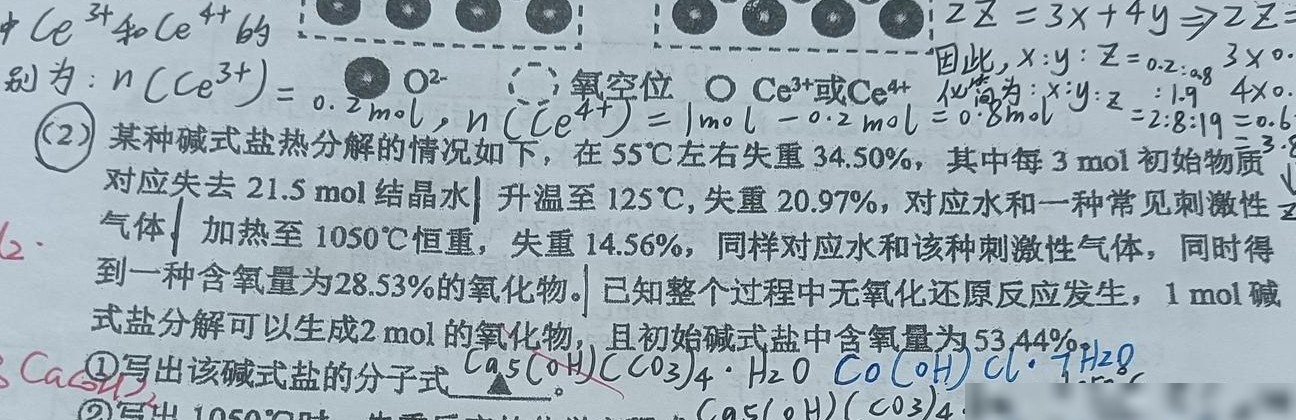 Ce³⁺和Ce⁴⁺的
2Z=3x+4y⇒2Z=
别为:n(Ce³⁺)=0.2mol,n(Ce⁴⁺)=1mol-0.2mol=0.8mol
O²⁻ 氧空位 Ce³⁺或Ce⁴⁺
因此,x:y:Z=0.2:0.8:1.9
化简为:x:y:z=2:8:19
3×0.
4×0.
=0.6
=3.8
(2) 某种碱式盐热分解的情况如下,在55℃左右失重34.50%,其中每3 mol初始物质
对应失去21.5 mol结晶水 升温至125℃,失重20.97%,对应水和一种常见刺激性
气体 加热至1050℃恒重,失重14.56%,同样对应水和该种刺激性气体,同时得
到一种含氧量为28.53%的氧化物。已知整个过程中无氧化还原反应发生,1 mol碱
式盐分解可以生成2 mol的氧化物,且初始碱式盐中含氧量为53.44%。
①写出该碱式盐的分子式 Ca5(OH)(CO3)4·H2O Co(OH)Cl·7H2O
②写出1050℃时 Ca5(OH)(CO3)4·